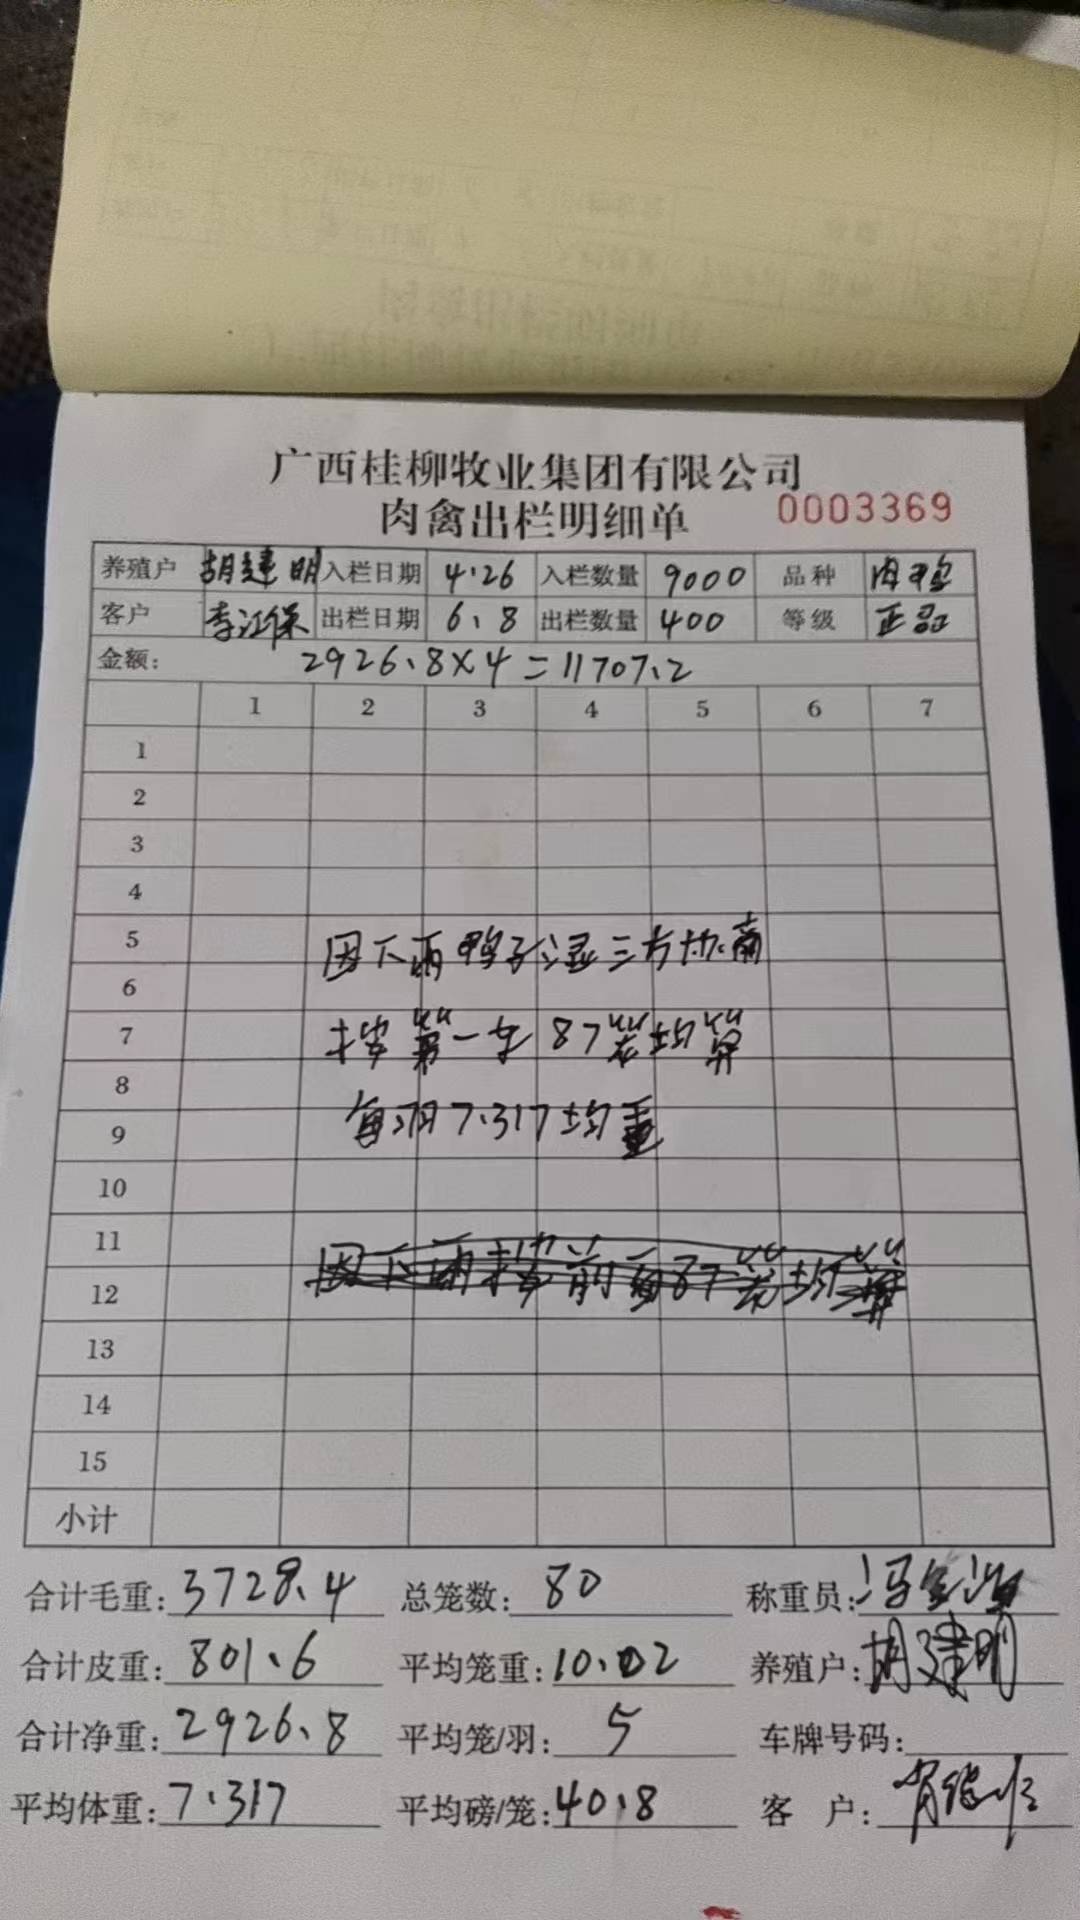 广西桂柳牧业集团有限公司
肉禽出栏明细单 0003369
养殖户 胡建明 入栏日期 4.26 入栏数量 9000 品种 肉鸭
客户 李江保 出栏日期 6.8 出栏数量 400 等级 正品
金额: 2926.8×4=11707.2
1 2 3 4 5 6 7
1
2
3
4
5 因下雨鸭子湿三方协商
6
7 按第一车87笼均算
8
9 每羽7.317均重
10
11
12 因下雨按前面87笼均算
13
14
15
小计
合计毛重: 3728.4 总笼数: 80 称重员:
合计皮重: 801.6 平均笼重: 10.02 养殖户: 胡建明
合计净重: 2926.8 平均笼/羽: 5 车牌号码:
平均体重: 7.317 平均磅/笼: 40.8 客 户: